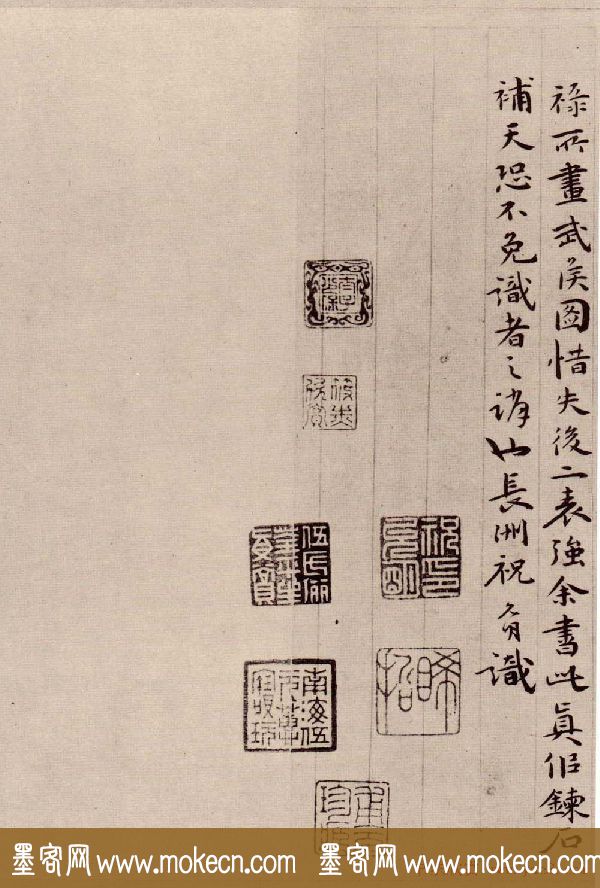 祿所畫武侯圖惜失後二表強余書此真佀鍊石
補天恐不免識者之誚也長洲祝允明識
祝印允明
晞哲
墨客网 www.mokecn.com 墨客网 www.mokecn.com